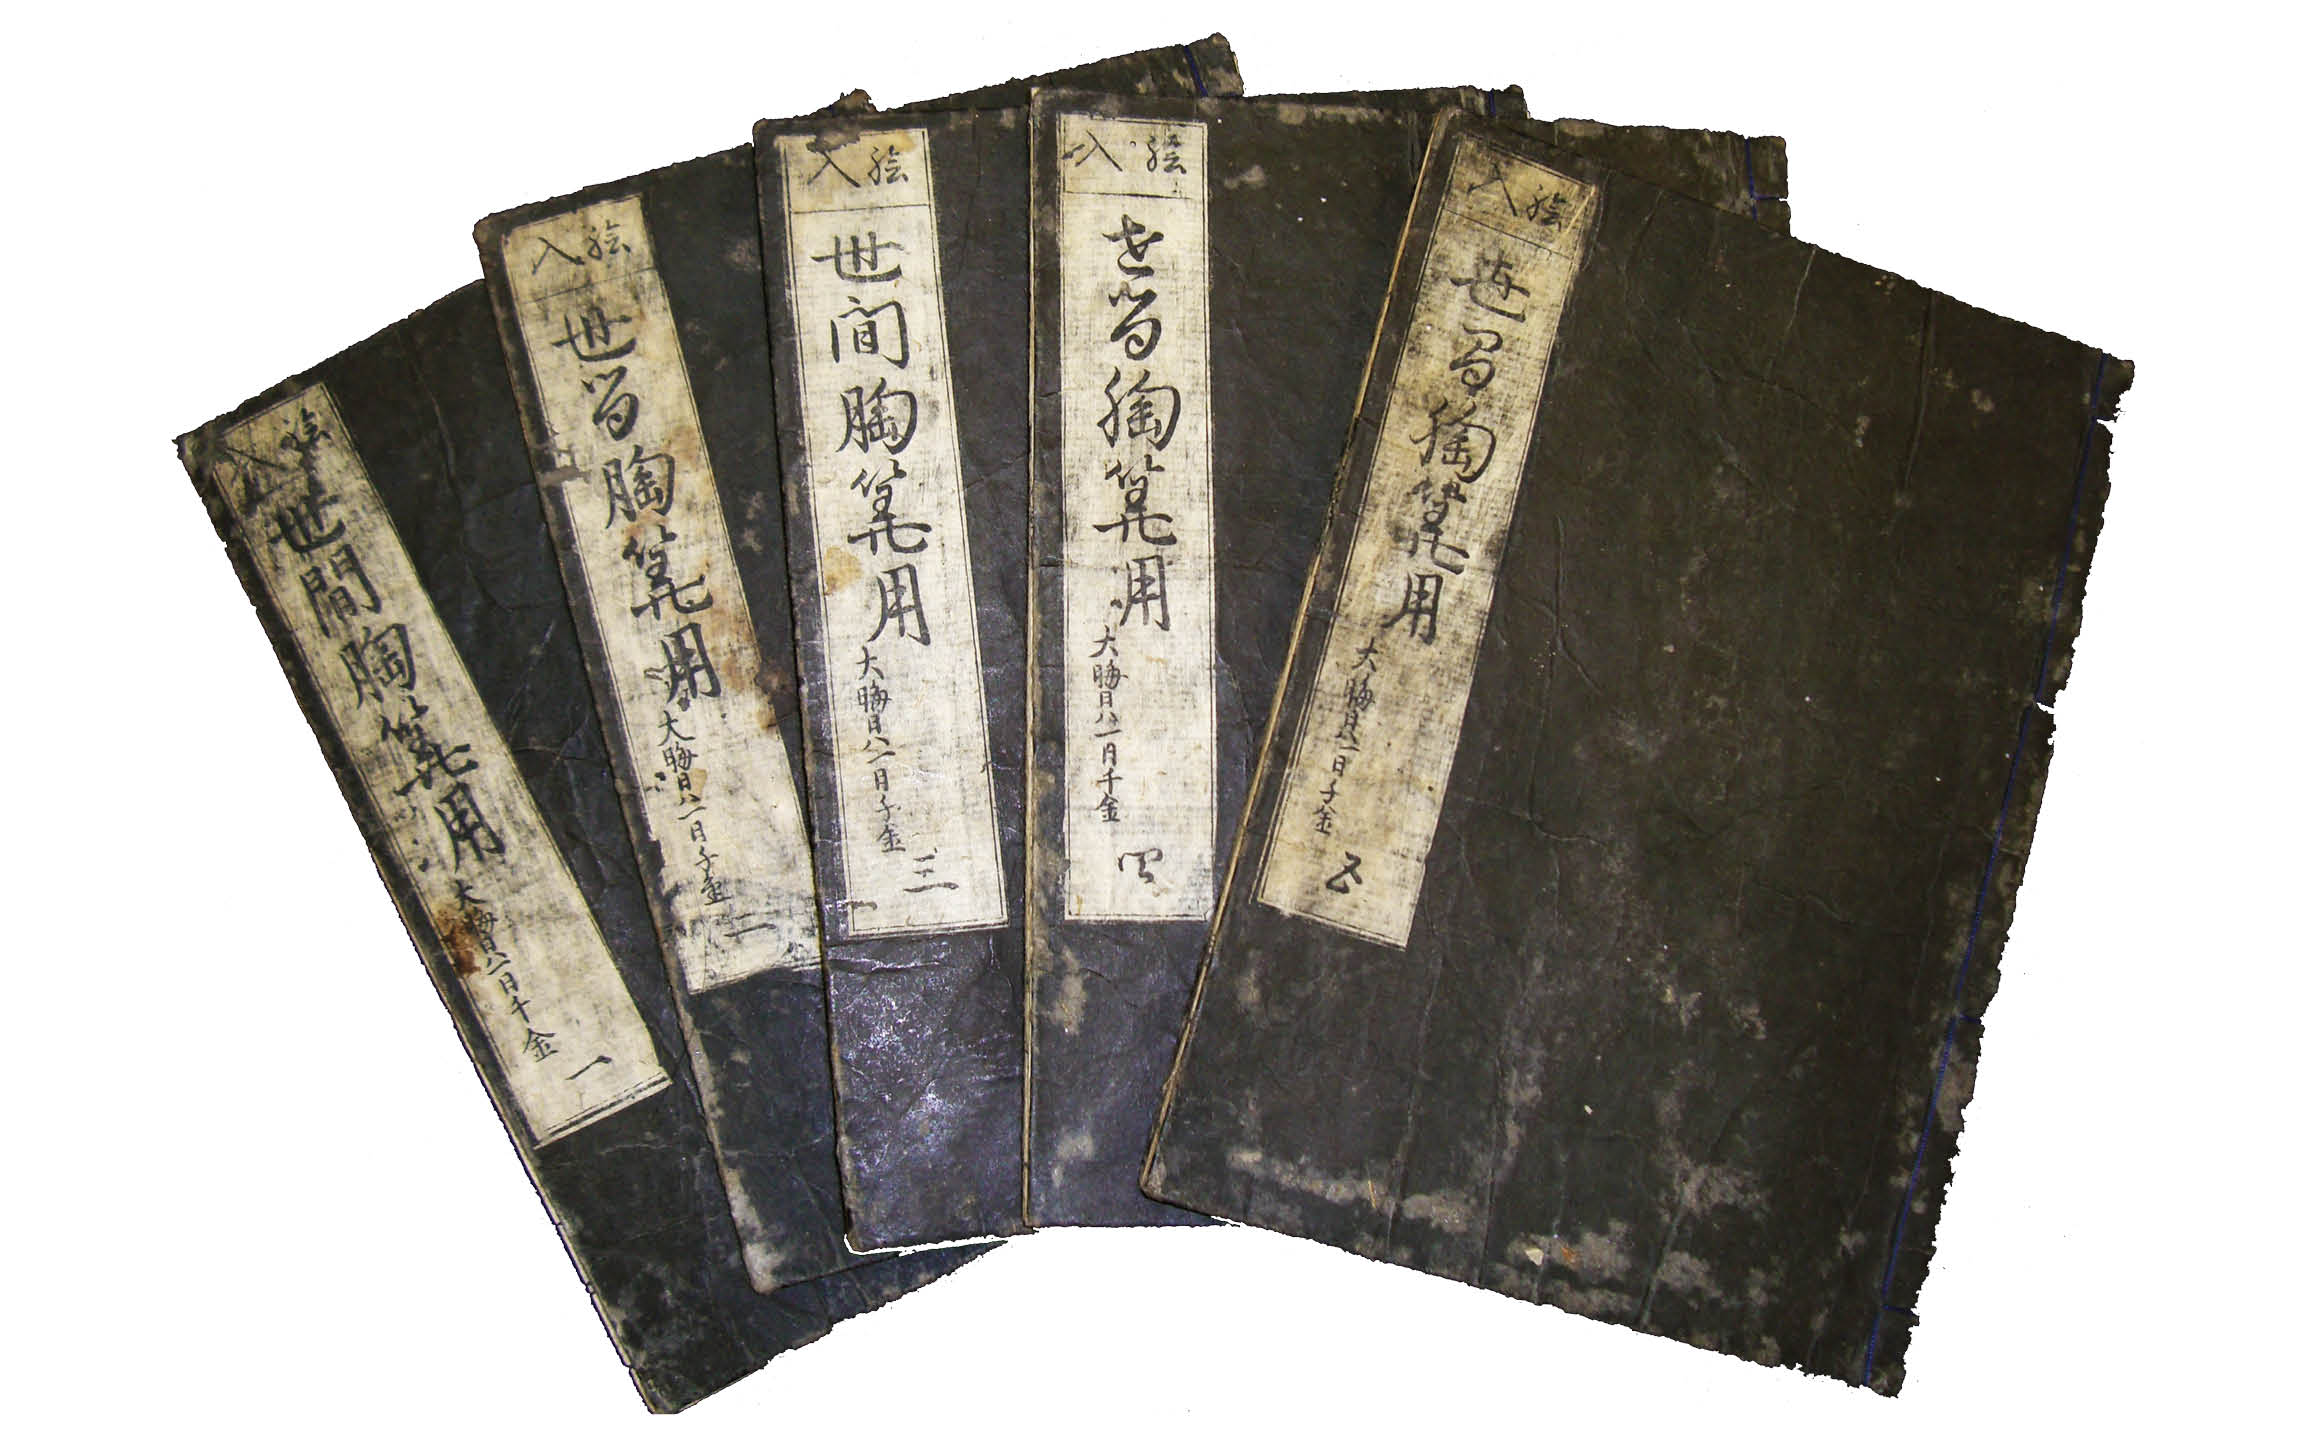 絵入
世間胸算用
大晦日ハ一日千金
一
絵入
世間胸算用
大晦日ハ一日千金
二
絵入
世間胸算用
大晦日ハ一日千金
三
絵入
世間胸算用
大晦日ハ一日千金
四
絵入
世間胸算用
大晦日ハ一日千金
五